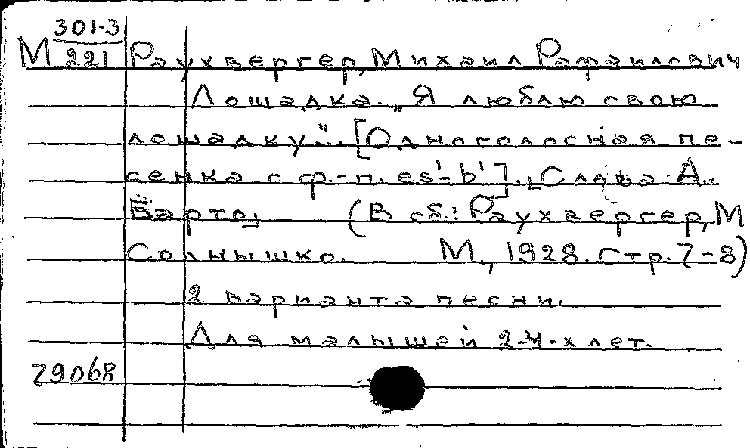 301-3
М 221 Раухвергер, Михаил Рафаилович
Лошадка. „Я люблю свою
лошадку". [Одноголосная пе-
сенка с ф.-п. es'-b']. [Слова А.
Барто] (В сб.: Раухвергер, М
Солнышко. М., 1928. стр. 7-8)
2 варианта песни.
Для малышей 2-4-х лет.
29068